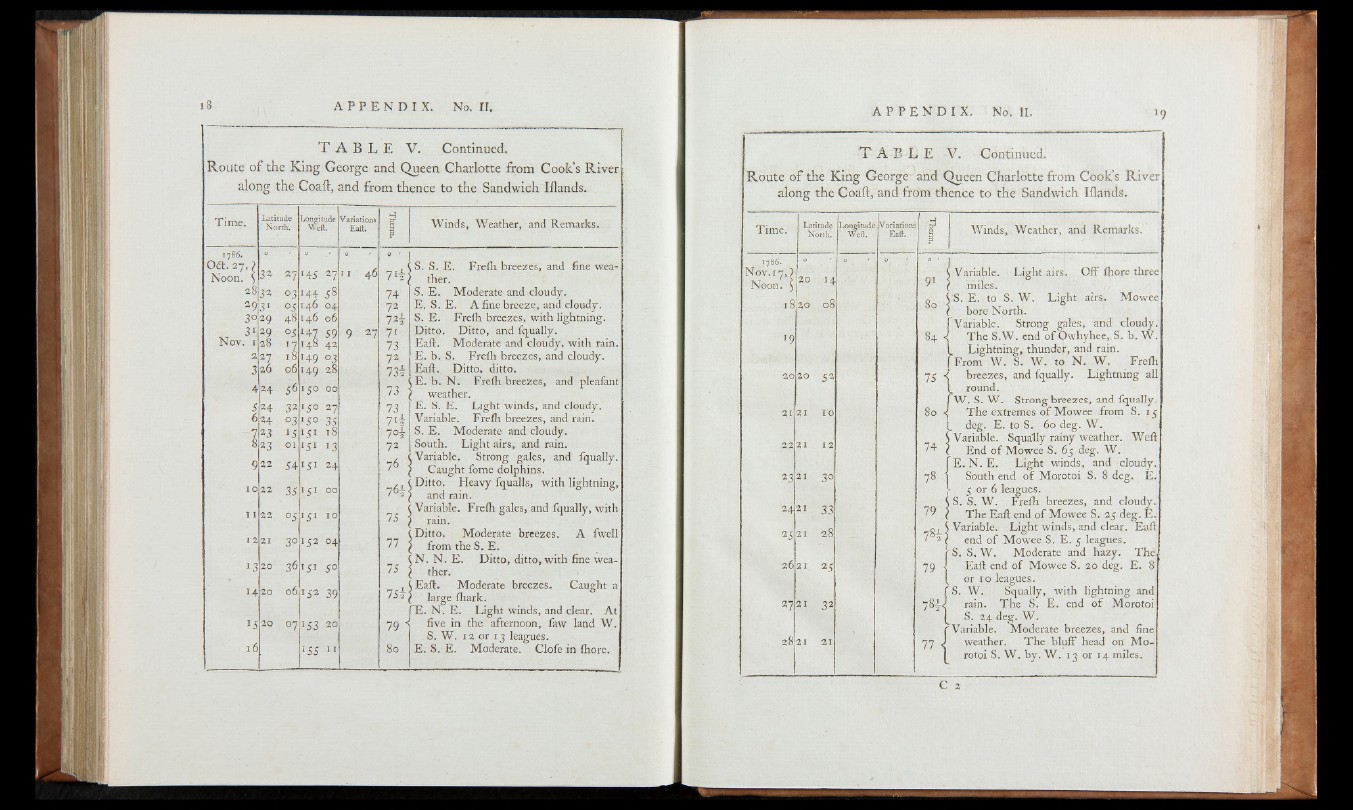 18 APPENDIX. No. II.
TABLE V. Continued.
Route of the King George and Queen Charlotte from Cook's River
along the Coaſt, and from thence to the Sandwich Iſlands.
Time. Latitude North. Longitude Weſt. Variations Eaſt. Therm. Winds, Weather, and Remarks.
1786. ° ' ° ' ° ' ° '
Oct. 27, Noon. 32 27 145 27 11 46 71½ S. S. E. Freſh breezes, and fine wea-
ther.
28 32 03 144 58 74 S. E. Moderate and cloudy.
29 31 05 146 04 72 E. S. E. A fine breeze, and cloudy.
30 29 48 146 06 72½ S. E. Freſh breezes, with lightning.
31 29 05 147 59 9 27 71 Ditto. Ditto, and ſqually.
Nov. 1 28 17 148 42 73 Eaſt. Moderate and cloudy, with rain.
2 27 18 149 03 72 E. b. S. Freſh breezes, and cloudy.
3 26 06 149 28 73½ Eaſt. Ditto, ditto.
4 24 56 150 00 73 E. b. N. Freſh breezes, and pleaſant
weather.
5 24 32 150 27 73 E. S. E. Light winds, and cloudy.
6 24 03 150 35 71½ Variable. Freſh breezes, and rain.
7 23 15 151 18 70½ S. E. Moderate and cloudy.
8 23 01 151 13 72 South. Light airs, and rain.
9 22 54 151 24 76 Variable. Strong gales, and ſqually.
Caught ſome dolphins.
10 22 35 151 00 76½ Ditto. Heavy ſqualls, with lightning,
and rain.
11 22 05 151 10 75 Variable. Freſh gales, and ſqually, with
rain.
12 21 30 152 04 77 Ditto. Moderate breezes. A ſwell
from the S. E.
13 20 36 151 50 75 N. N. E. Ditto, ditto, with fine wea-
ther.
14 20 06 152 39 75½ Eaſt. Moderate breezes. Caught a
large ſhark.
15 20 07 153 20 79 E. N. E. Light winds, and clear. At
five in the afternoon, ſaw land W.
S. W. 12 or 13 leagues.
16 155 11 80 E. S. E. Moderate. Cloſe in ſhore.
APPENDIX. No. II. 19
TABLE V. Continued.
Route of the King George and Queen Charlotte from Cook's River
along the Coaſt, and from thence to the Sandwich Iſlands.
Time. Latitude North. Longitude Weſt. Variations Eaſt. Therm. Winds, Weather, and Remarks.
1786. ° ' ° ' ° ' ° '
Nov. 17, Noon. 20 14 91 Variable. Light airs. Off ſhore three
miles.
18 20 08 80 S. E. to S. W. Light airs. Mowee
bore North.
19 84 Variable. Strong gales, and cloudy.
The S.W. end of Owhyhee, S. b. W.
Lightning, thunder, and rain.
20 20 52 75 From W. S. W. to N. W. Freſh
breezes, and ſqually. Lightning all
round.
21 21 10 80 W. S. W. Strong breezes, and ſqually.
The extremes of Mowee from S. 15
deg. E. to S. 60 deg. W.
22 21 12 74 Variable. Squally rainy weather. Weſt
End of Mowee S. 65 deg. W.
23 21 30 78 E. N. E. Light winds, and cloudy.
South end of Morotoi S. 8 deg. E.
5 or 6 leagues.
24 21 33 79 S. S. W. Freſh breezes, and cloudy.
The Eaſt end of Mowee S. 25 deg. E.
25 21 28 78½ Variable. Light winds, and clear. Eaſt
end of Mowee S. E. 5 leagues.
26 21 25 79 S. S. W. Moderate and hazy. The
Eaſt end of Mowee S. 20 deg. E. 8
or 10 leagues.
27 21 32 78½ S. W. Squally, with lightning and
rain. The S. E. end of Morotoi
S. 24 deg. W.
28 21 21 77 Variable. Moderate breezes, and fine
weather. The bluff head on Mo-
rotoi S. W. by. W. 13 or 14 miles.
C 2